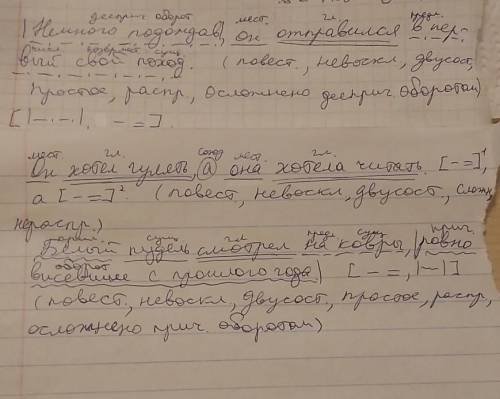 дееприч. оборот мест. гл. предл.
|Немного подождав|, он отправился в пер-
числ. возвратн. сущ.
вый свой поход. (повест., невоскл, двусост,
простое, распр, осложнено дееприч. оборотом)
[|-.-.|, - =].
мест. гл. союз мест. гл.
Он хотел гулять, а она хотела читать. [- =]¹,
а [- =]². (повест, невоскл, двусост, сложн,
нераспр.)
сущ. гл. предл. сущ. прич.
Белый пудель смотрел на ковры, |ровно
оборот
висевшие с прошлого года| [- =, |~|]
(повест, невоскл, двусост, простое, распр,
осложнено прич. оборотом)